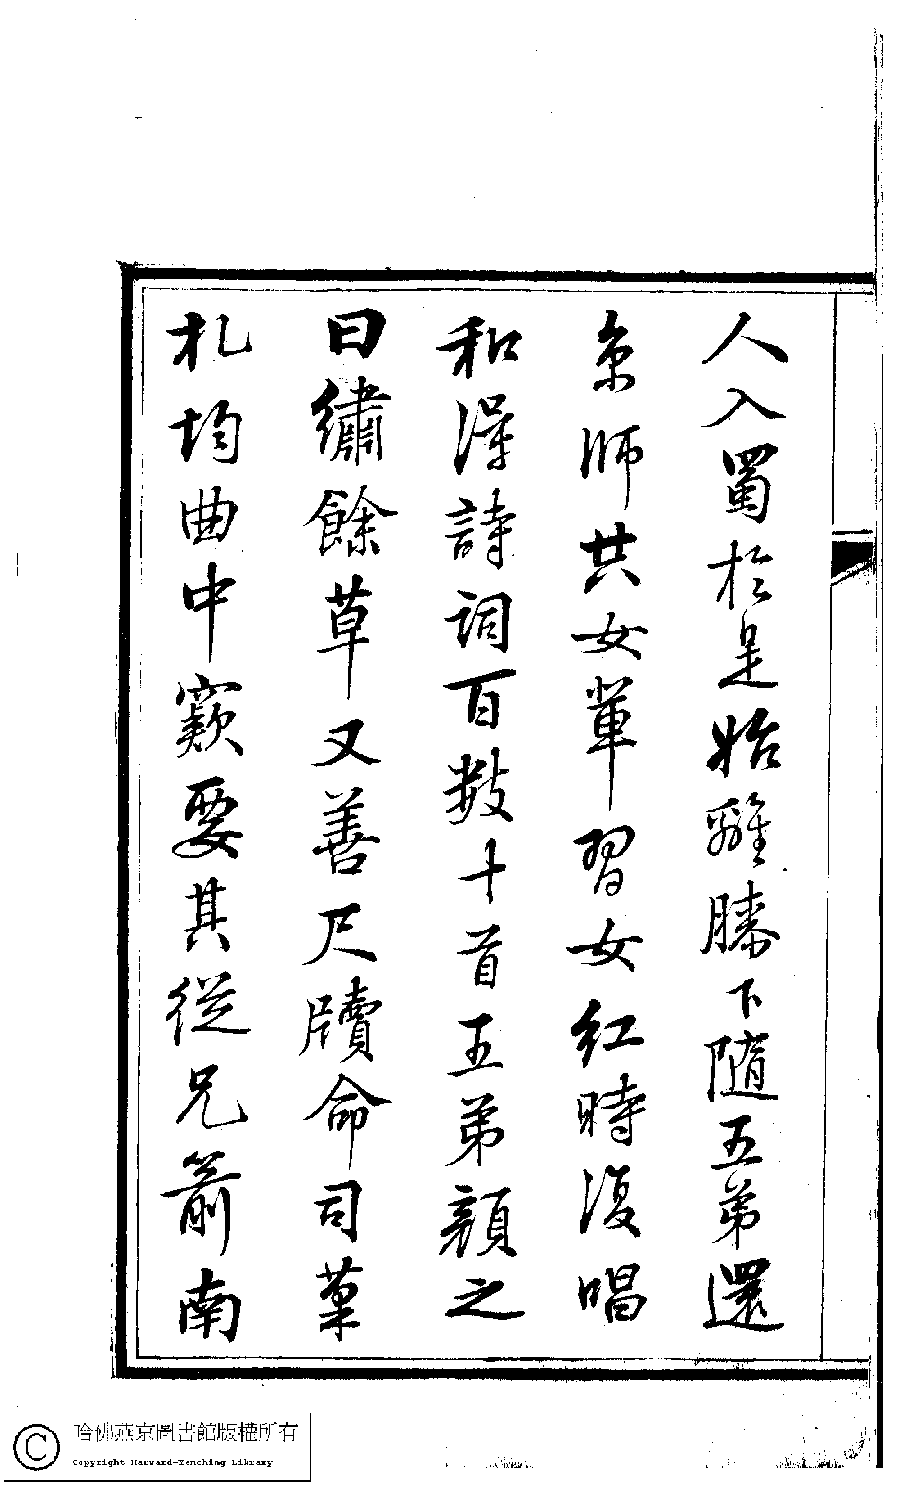 人入蜀於是始離膝下隨五弟還
京師共女輩習女紅時復唱
和得詩詞百數十首五弟顏之
曰繡餘草又善尺牘命司藁
札均曲中窾要其從兄箭南
哈佛燕京圖書館版權所有
Copyright Harvard-Yenching Library